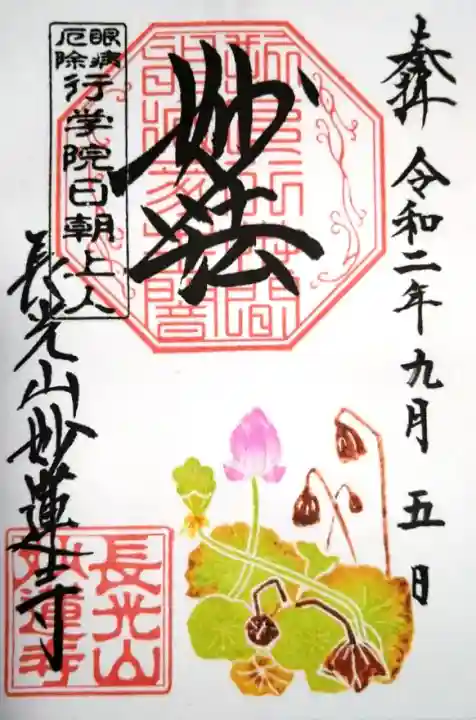 奉拝 令和二年九月五日
妙法
眼病
厄除
行学院日朝上人
長光山妙蓮寺
長光山
妙蓮寺